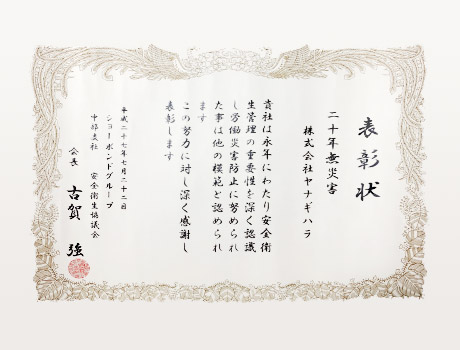 表彰状
二十年無災害
株式会社ヤナギハラ
貴社は永年にわたり安全衛
生管理の重要性を深く認識
し労働災害防止に努められ
た事は他の模範と認められ
ます
この努力に対し深く感謝し
表彰します
平成二十七年七月二十二日
ショーボンドグループ
中部支社 安全衛生協議会
会長 古賀 強